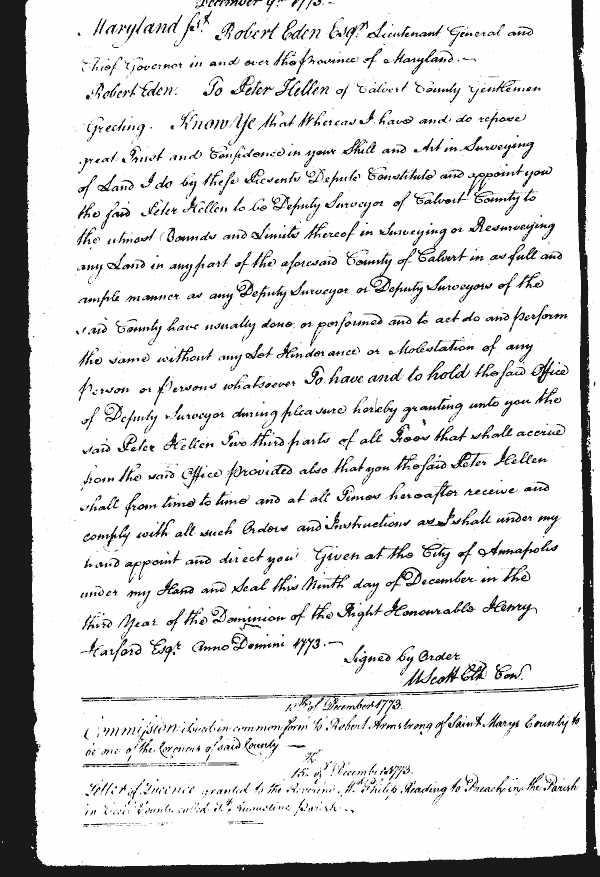 December 9th 1773.—
Maryland sst Robert Eden Esqr. Lieutenant General and
Chief Governor in and over the Province of Maryland.—
Robert Eden. To Peter Hellen of Calvert County Gentlemen
Greeting. Know Ye that Whereas I have and do repose
great Trust and Confidence in your Skill and Art in Surveying
of Land I do by these Presents Depute Constitute and appoint you
the said Peter Hellen to be Deputy Surveyor of Calvert County to
the utmost Bounds and Limits thereof in Surveying or Resurveying
any Land in any part of the aforesaid County of Calvert in as full and
ample manner as any Deputy Surveyor or Deputy Surveyors of the
said County have usually done or performed and to act do and perform
the same without any Let Hinderance or Molestation of any
Person or Persons whatsoever To have and to hold the said Office
of Deputy Surveyor during pleasure hereby granting unto you the
said Peter Hellen Two third parts of all Fees that shall accrue
from the said Office provided also that you the said Peter Hellen
shall from time to time and at all Times hereafter receive and
comply with all such Orders and Instructions as I shall under my
hand appoint and direct you Given at the City of Annapolis
under my Hand and Seal this Ninth day of December in the
third Year of the Dominion of the Right Honourable Henry
Harford Esqr. Anno Domini 1773.—
Signed by Order
U Scott Clk Con.
of December 1773.
Commission issued in common form to Robert Armstrong of Saint Marys County to
be one of the Coroners of said County —
15th of December 1773.
Letter of Licence granted to the Reverend Mr. Philip Reading to Preach in the Parish
in Cecil County called St. Augustine Parish.